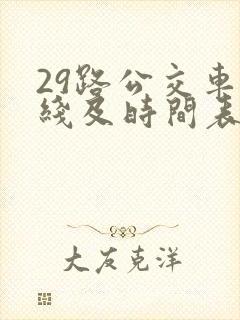 29路公交車
綫及時間表
大友克洋